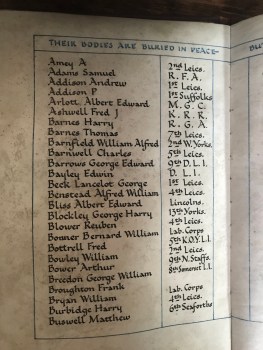 THEIR BODIES ARE BURIED IN PEACE-
Amey A 2nd Leics.
Adams Samuel R. F. A.
Addison Andrew 1st Leics.
Addison P 1st Suffolks
Arlott Albert Edward M. G. C.
Ashwell Fred J K. R. R.
Barnes Harry R. G. A.
Barnes Thomas 7th Leics.
Barnfield William Alfred 2nd W. Yorks.
Barnwell Charles 5th Leics.
Barrows George Edward 9th D. L. I.
Bayley Edwin D. L. I.
Beck Lancelot George 1st Leics.
Benstead Alfred William 4th Leics.
Bliss Albert Edward Lincolns.
Blockley George Harry 13th Yorks.
Blower Reuben 4th Leics.
Bonner Bernard William Lab. Corps
Bottrell Fred 5th K.O.Y.L.I.
Bowley William 2nd Leics.
Bower Arthur 9th N. Staffs.
Breedon George William 8th Somerset L.I.
Broughton Frank Lab. Corps
Bryan William 4th Leics.
Burbidge Harry 6th Seaforths
Buswell Matthew